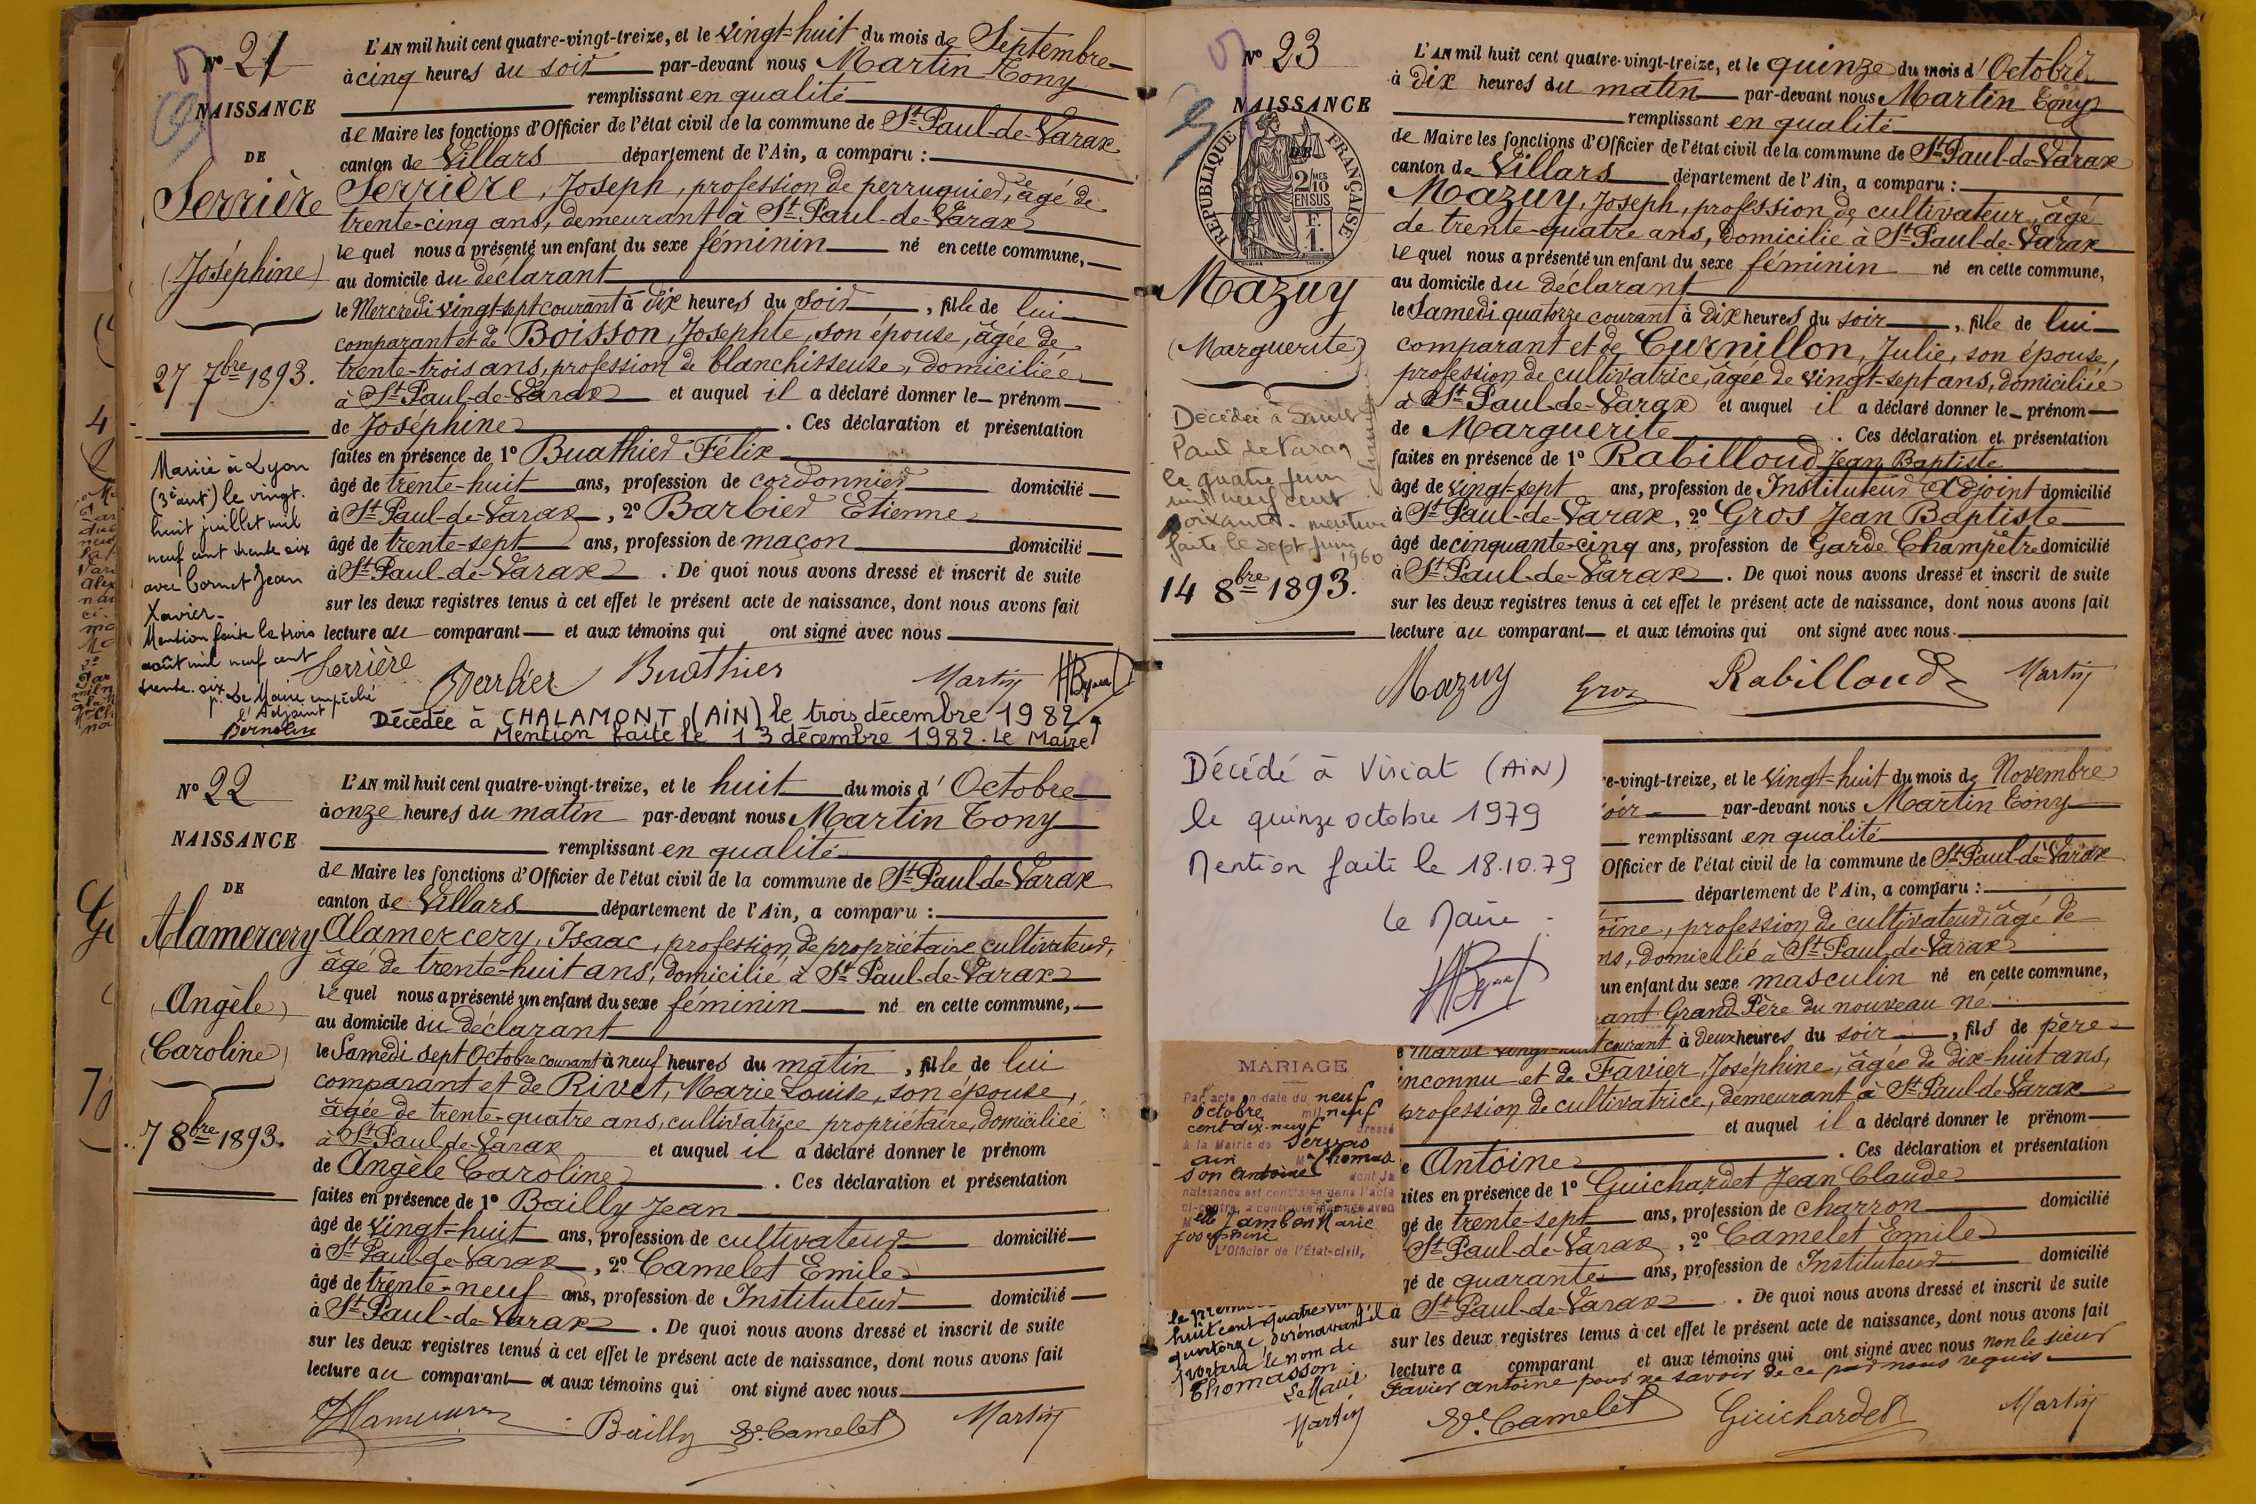 N° 21
NAISSANCE
DE
Serrière
(Joséphine)
27 7bre 1893.
Mariée à Lyon
(3e arrt) le vingt-
huit juillet mil
neuf cent trente six
avec Cornet Jean
Xavier.
Mention faite le trois
août mil neuf cent
trente-six
p. Le Maire empêché
l'Adjoint
L'AN mil huit cent quatre-vingt-treize, et le vingt-huit du mois de Septembre
à cinq heures du soir par-devant nous Martin Tony
remplissant en qualité
de Maire les fonctions d'Officier de l'état civil de la commune de St Paul-de-Varax
canton de Villars département de l'Ain, a comparu :
Serrière, Joseph, profession de perruquier, âgé de
trente-cinq ans, demeurant à St Paul-de-Varax
lequel nous a présenté un enfant du sexe féminin né en cette commune,
au domicile du déclarant
le Mercredi vingt-sept courant à dix heures du soir, fille de lui
comparant et de Boisson, Josephte, son épouse, âgée de
trente-trois ans, profession de blanchisseuse, domiciliée
à St Paul-de-Varax et auquel il a déclaré donner le prénom
de Joséphine. Ces déclaration et présentation
faites en présence de 1° Buathier Félix
âgé de trente-huit ans, profession de cordonnier domicilié
à St Paul-de-Varax, 2° Barbier Etienne
âgé de trente-sept ans, profession de maçon domicilié
à St Paul-de-Varax. De quoi nous avons dressé et inscrit de suite
sur les deux registres tenus à cet effet le présent acte de naissance, dont nous avons fait
lecture au comparant et aux témoins qui ont signé avec nous
Serrière Barbier Buathier Martin
Décédée à CHALAMONT (AIN) le trois décembre 1982
Mention faite le 13 décembre 1982. Le Maire
N° 22
NAISSANCE
DE
Alamercery
(Angèle)
(Caroline)
7 8bre 1893.
L'AN mil huit cent quatre-vingt-treize, et le huit du mois d'Octobre
à onze heures du matin par-devant nous Martin Tony
remplissant en qualité
de Maire les fonctions d'Officier de l'état civil de la commune de St Paul-de-Varax
canton de Villars département de l'Ain, a comparu :
Alamercery, Isaac, profession de propriétaire cultivateur,
âgé de trente-huit ans, domicilié à St Paul-de-Varax
lequel nous a présenté un enfant du sexe féminin né en cette commune,
au domicile du Déclarant
le Samedi sept Octobre courant à neuf heures du matin, fille de lui
comparant et de Rivet, Marie Louise, son épouse,
âgée de trente-quatre ans, cultivatrice propriétaire, domiciliée
à St Paul-de-Varax et auquel il a déclaré donner le prénom
de Angèle Caroline. Ces déclaration et présentation
faites en présence de 1° Bailly Jean
âgé de vingt-huit ans, profession de cultivateur domicilié
à St Paul-de-Varax, 2° Camelet Emile
âgé de trente-neuf ans, profession de Instituteur domicilié
à St Paul-de-Varax. De quoi nous avons dressé et inscrit de suite
sur les deux registres tenus à cet effet le présent acte de naissance, dont nous avons fait
lecture au comparant et aux témoins qui ont signé avec nous
Bailly Camelet Martin
N° 23
NAISSANCE
DE
RÉPUBLIQUE FRANÇAISE
2/10 MES
EN SUS
F. 1
Mazuy
(Marguerite)
Décédée à Saint
Paul de Varax
le quatre juin
mil neuf cent
soixante. mention
faite le sept juin
1960
14 8bre 1893.
L'AN mil huit cent quatre-vingt-treize, et le quinze du mois d'Octobre
à dix heures du matin par-devant nous Martin Tony
remplissant en qualité
de Maire les fonctions d'Officier de l'état civil de la commune de St Paul-de-Varax
canton de Villars département de l'Ain, a comparu :
Mazuy, Joseph, profession de cultivateur, âgé
de trente-quatre ans, domicilié à St Paul-de-Varax
lequel nous a présenté un enfant du sexe féminin né en cette commune,
au domicile du déclarant
le Samedi quatorze courant à dix heures du soir, fille de lui
comparant et de Curnillon, Julie, son épouse,
profession de cultivatrice, âgée de vingt-sept ans, domiciliée
à St Paul-de-Varax et auquel il a déclaré donner le prénom
de Marguerite. Ces déclaration et présentation
faites en présence de 1° Rabilloud Jean Baptiste
âgé de vingt-sept ans, profession de Instituteur Adjoint domicilié
à St Paul-de-Varax, 2° Gros Jean Baptiste
âgé de cinquante-cinq ans, profession de Garde Champêtre domicilié
à St Paul-de-Varax. De quoi nous avons dressé et inscrit de suite
sur les deux registres tenus à cet effet le présent acte de naissance, dont nous avons fait
lecture au comparant et aux témoins qui ont signé avec nous.
Mazuy Gros Rabilloud Martin
Décédé à Viriat (AIN)
le quinze octobre 1979
Mention faite le 18.10.79
Le Maire
MARIAGE
Par acte en date du neuf
octobre mil neuf
cent dix-neuf dressé
à la Mairie de Servas
ain M. Thomas
son Antoine dont la
naissance est constatée dans l'acte
ci-contre, a contracté mariage avec
Melle Jambon Marie
Josephine
L'Officier de l'État-civil,
huit cent quatre-vingt
quatorze, dorénavant il
portera le nom de
Thomasson
Le Maire
Martin
re-vingt-treize, et le vingt-huit du mois de Novembre
oir par-devant nous Martin Tony
remplissant en qualité
Officier de l'état civil de la commune de St Paul-de-Varax
département de l'Ain, a comparu :
oine, profession de cultivateur, âgé de
ns, domicilié à St Paul-de-Varax
un enfant du sexe masculin né en cette commune,
ant Grand Père du nouveau né
e Mardi vingt-huit courant à deux heures du soir, fils de père
inconnu et de Favier, Joséphine, âgée de dix-huit ans,
profession de cultivatrice, demeurant à St Paul-de-Varax
et auquel il a déclaré donner le prénom
e Antoine. Ces déclaration et présentation
aites en présence de 1° Guichardet Jean Claude
gé de trente-sept ans, profession de charron domicilié
St Paul-de-Varax, 2° Camelet Emile
gé de quarante ans, profession de Instituteur domicilié
à St Paul-de-Varax. De quoi nous avons dressé et inscrit de suite
sur les deux registres tenus à cet effet le présent acte de naissance, dont nous avons fait
lecture a comparant et aux témoins qui ont signé avec nous non le sieur
Favier Antoine pour ne savoir de ce par nous requis
Camelet Guichardet Martin